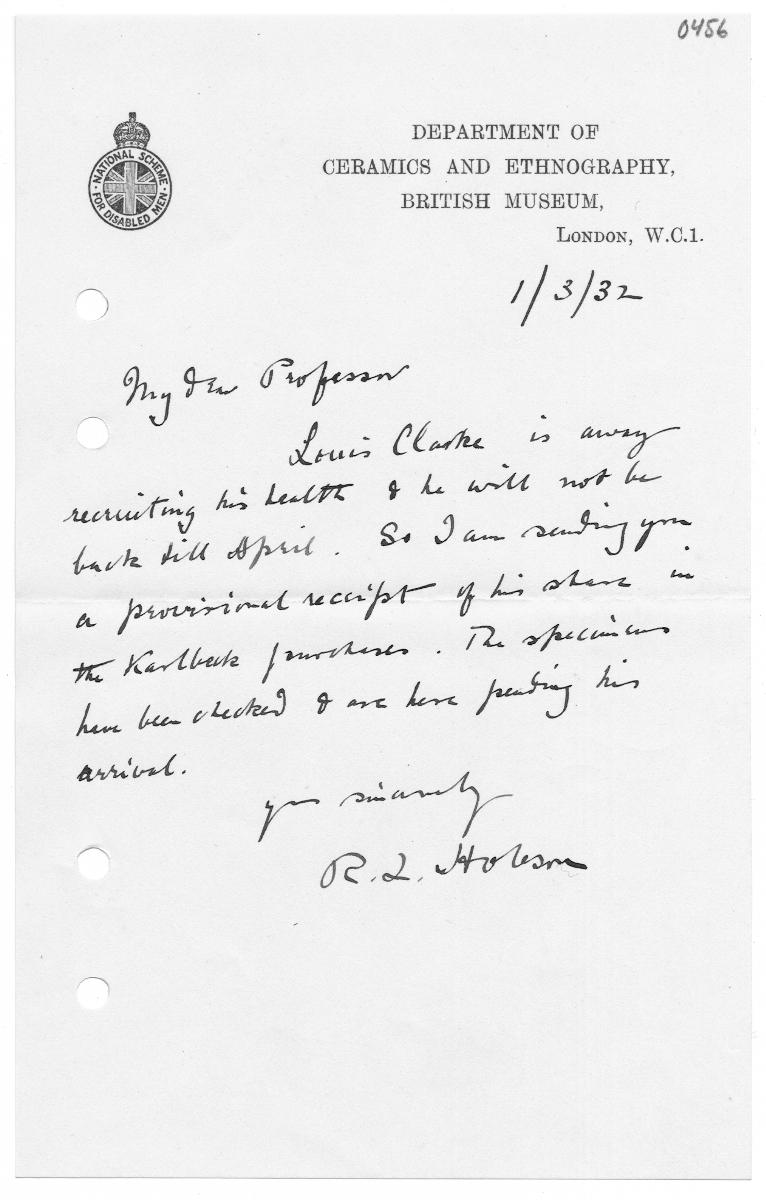 0456
NATIONAL SCHEME
· FOR DISABLED MEN ·
DEPARTMENT OF
CERAMICS AND ETHNOGRAPHY,
BRITISH MUSEUM,
LONDON, W.C.1.
1/3/32
My dear Professor
Louis Clarke is away
recruiting his health & he will not be
back till April. So I am sending you
a provisional receipt of his share in
the Karlbeck purchases. The specimens
have been checked & are here pending his
arrival.
yrs sincerely
R. L. Hobson